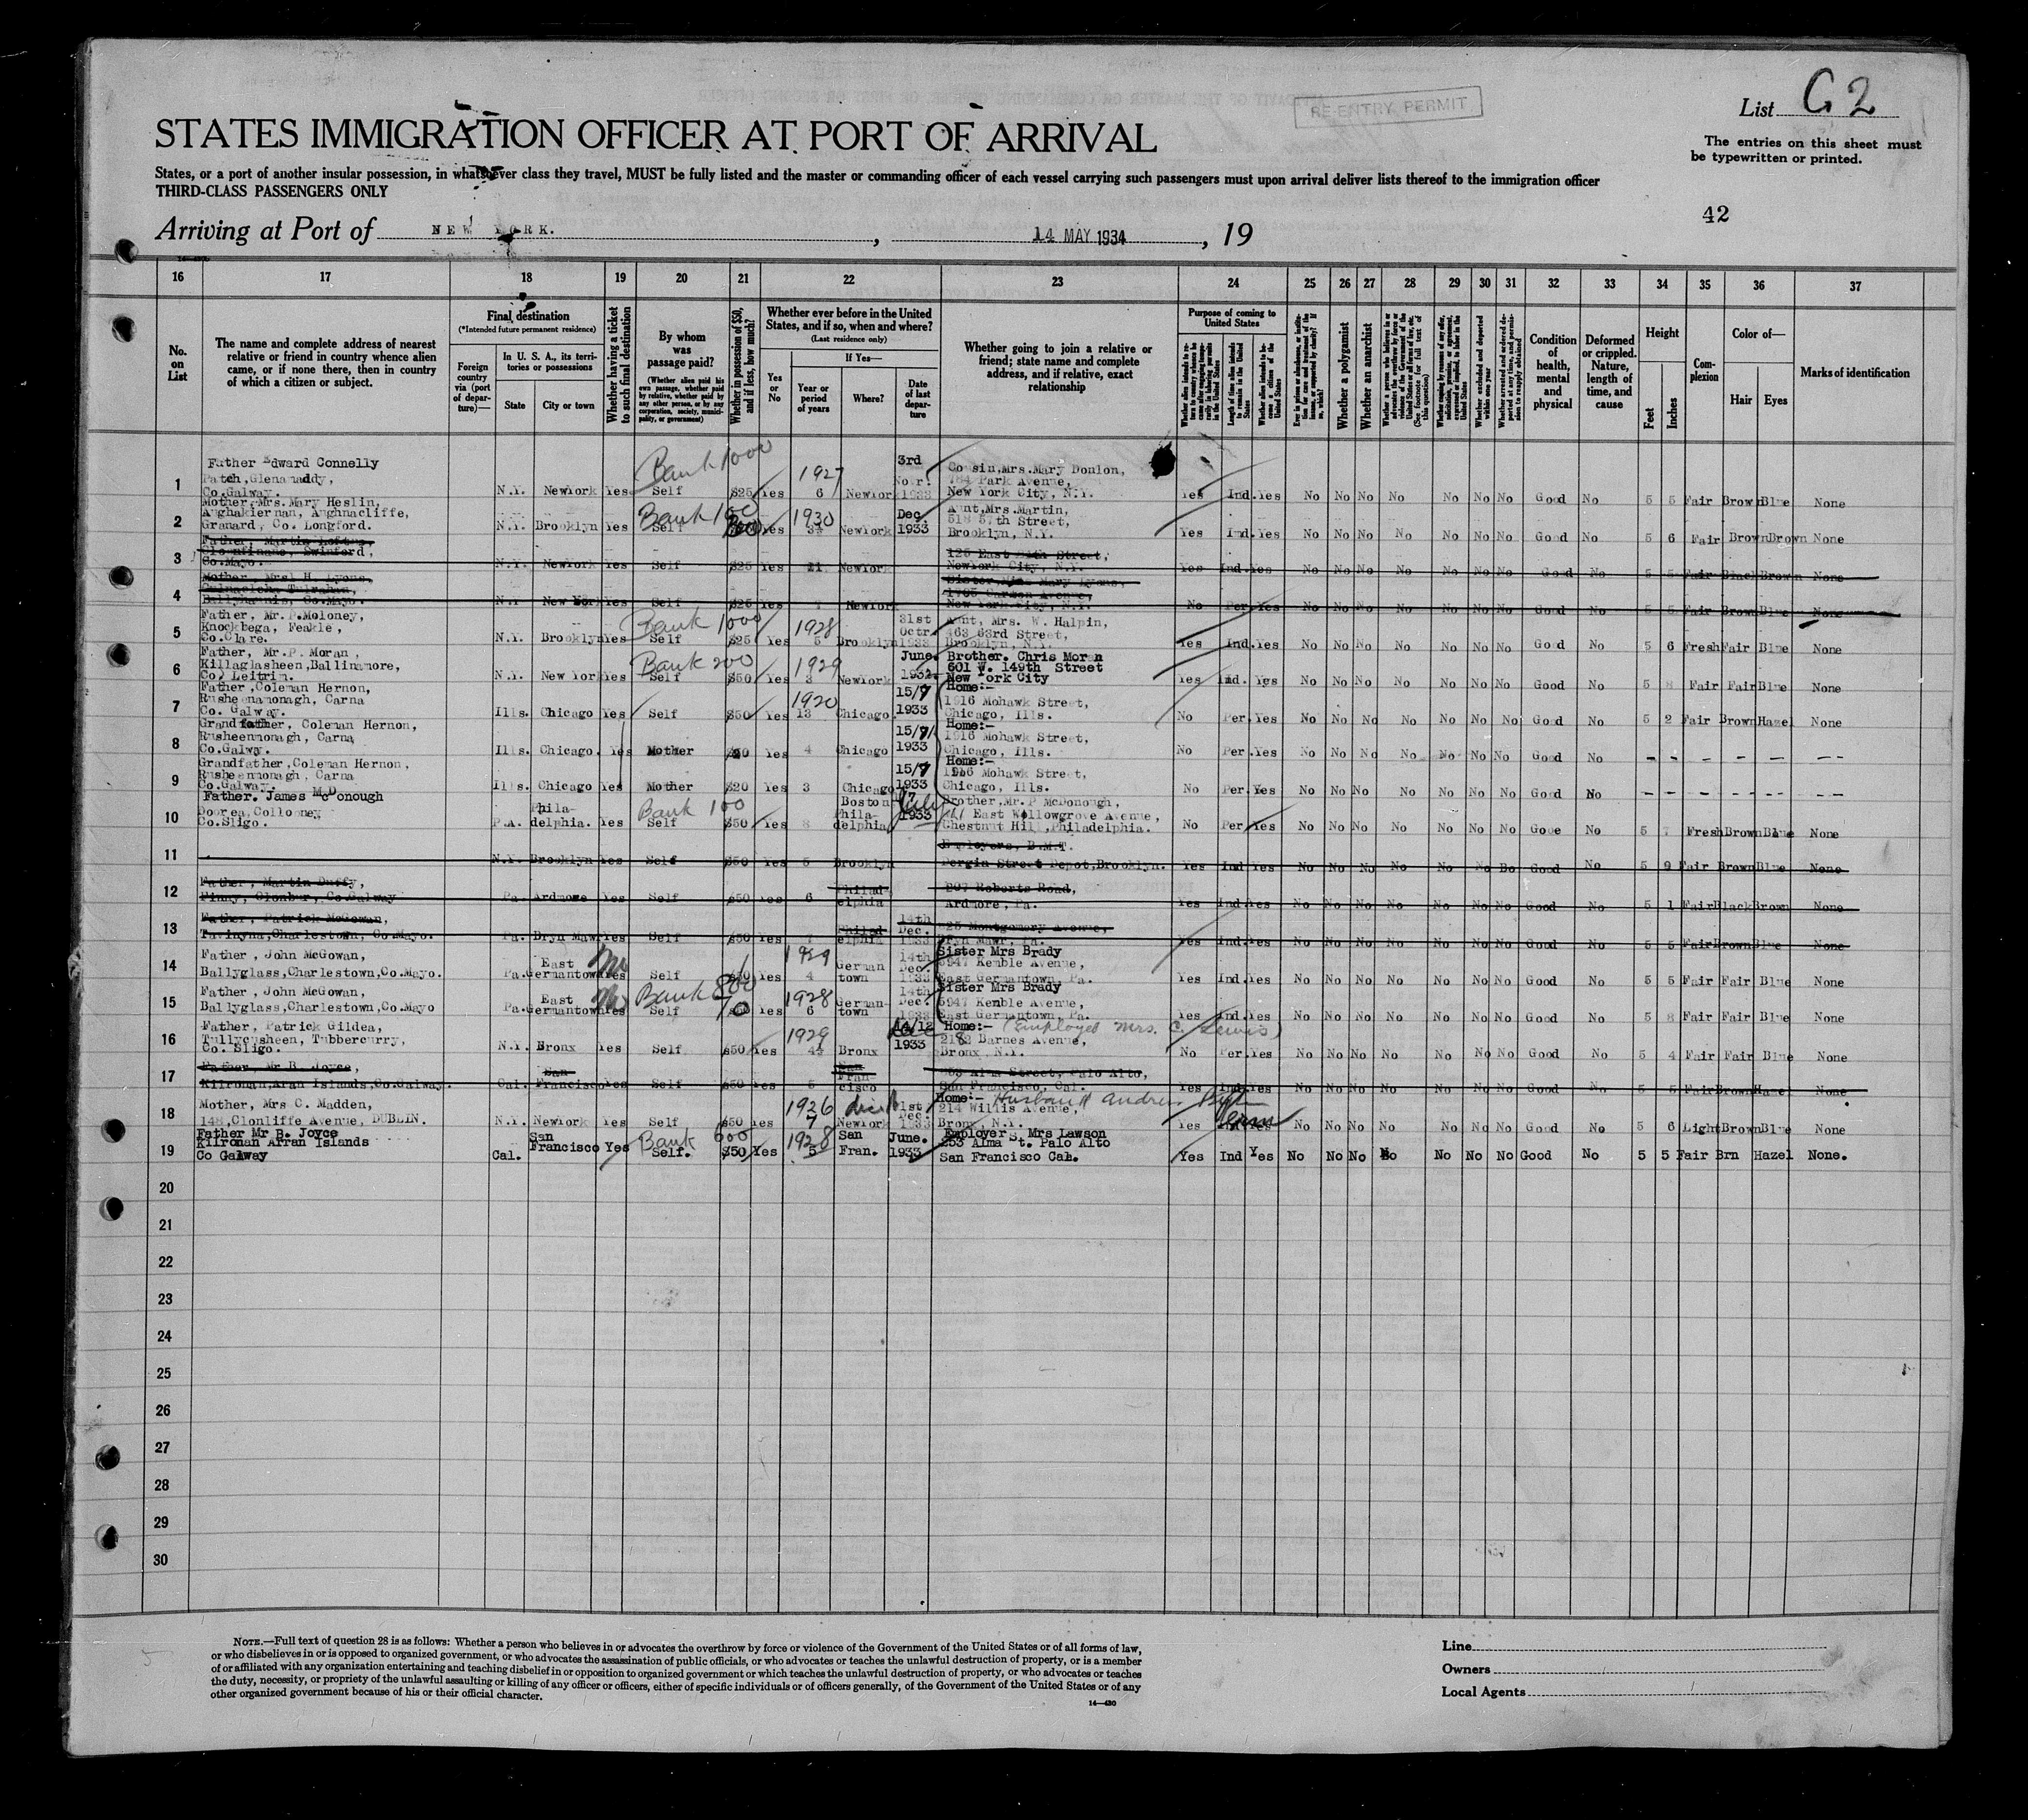 RE-ENTRY PERMIT
List G 2
STATES IMMIGRATION OFFICER AT PORT OF ARRIVAL
The entries on this sheet must
be typewritten or printed.
States, or a port of another insular possession, in whatsoever class they travel, MUST be fully listed and the master or commanding officer of each vessel carrying such passengers must upon arrival deliver lists thereof to the immigration officer
THIRD-CLASS PASSENGERS ONLY
42
Arriving at Port of NEW YORK. , 14 MAY 1934 , 19
16 17 18 19 20 21 22 23 24 25 26 27 28 29 30 31 32 33 34 35 36 37
No. on List
The name and complete address of nearest
relative or friend in country whence alien
came, or if none there, then in country
of which a citizen or subject.
Final destination
(*Intended future permanent residence)
Foreign country via (port of departure)—
In U. S. A., its territories or possessions
State City or town
Whether having a ticket to such final destination
By whom was passage paid?
(Whether alien paid his own passage, whether paid by relative, whether paid by any other person, or by any corporation, society, municipality, or government)
Whether in possession of $50, and if less, how much?
Whether ever before in the United
States, and if so, when and where?
(Last residence only)
Yes or No
If Yes—
Year or period of years
Where?
Date of last departure
Whether going to join a relative or
friend; state name and complete
address, and if relative, exact
relationship
Purpose of coming to United States
Length of time alien intends to remain in the United States
Whether alien intends to become a citizen of the United States
Whether a polygamist
Whether an anarchist
Condition of health, mental and physical
Deformed or crippled. Nature, length of time, and cause
Height
Feet Inches
Complexion
Color of—
Hair Eyes
Marks of identification
1 Father Edward Connelly
Patch, Glenamaddy,
Co.Galway. N.Y. NewYork Yes Self Bank 1000 $25 Yes 1927 6 NewYork 3rd Novr. 1933 Cousin,Mrs.Mary Donlon,
784 Park Avenue,
New York City, N.Y. Yes Ind. Yes No No No No No No No Good No 5 5 Fair Brown Blue None
2 Mother,Mrs.Mary Heslin,
Aughakiernan, Aughnacliffe,
Granard, Co. Longford. N.Y. Brooklyn Yes Self Bank 100 Yes 1930 3½ NewYork Dec. 1933 Aunt,Mrs.Martin,
518 57th Street,
Brooklyn, N.Y. Yes Ind. Yes No No No No No No No Good No 5 6 Fair Brown Brown None
3 Father, Martin Loftus,
Cloonfinane, Swinford,
Co.Mayo. N.Y. NewYork Yes Self $25 Yes NewYork 125 East Street,
NewYork City, N.Y. Yes Ind. Yes No No No No No No No Good No 5 5 Fair Black Brown None
4 Mother, Mrs. H. Lyons,
Ballyhaunis, Co.Mayo. N.Y. New York Yes Self $25 Yes NewYork Sister,Miss Mary Lyons,
New York City, N.Y. No Per. Yes No No No No No No No Good No 5 5 Fair Brown Blue None
5 Father, Mr. P.Moloney,
Knockbega, Feakle,
Co.Clare. N.Y. Brooklyn Yes Self Bank 1000 $25 Yes 1928 5 Brooklyn 31st Octr. 1933 Aunt, Mrs. W. Halpin,
463 63rd Street,
Brooklyn, N.Y. Yes Ind. Yes No No No No No No No Good No 5 6 Fresh Fair Blue None
6 Father, Mr.P. Moran,
Killaglasheen,Ballinamore,
Co) Leitrim. N.Y. New York Yes Self Bank 200 $50 Yes 1929 3 NewYork June. 1932. Brother. Chris Moran
601 W. 149th Street
New York City Yes Ind. Yes No No No No No No No Good No 5 8 Fair Fair Blue None
7 Father,Coleman Hernon,
Rusheenamonagh, Carna
Co. Galway. Ills. Chicago Yes Self $50 Yes 1920 13 Chicago. 15/7 1933 Home:-
1916 Mohawk Street,
Chicago, Ills. No Per. Yes No No No No No No No Good No 5 2 Fair Brown Hazel None
8 Grandfather, Coleman Hernon,
Rusheenmonagh, Carna
Co.Galwy. Ills. Chicago. Yes Mother Yes 4 Chicago 15/7/ 1933 Home:-
1916 Mohawk Street,
Chicago, Ills. No Per. Yes No No No No No No No Good No - - - - - --
9 Grandfather,Coleman Hernon,
Rusheenmonagh, Carna
Co.Galway. Ills. Chicago Yes Mother $20 Yes 3 Chicago 15/7 1933 Home:-
1916 Mohawk Street,
Chicago, Ills. No Per. Yes No No No No No No No Good No - - - - - --
10 Father. James McDonough
Doorea,Collooney
Co.Sligo. P.A. Phila-
delphia. Yes Self Bank 100 $50 Yes 8 Boston Phila-
delphia July 1933 Brother,Mr.P McDonough,
East Willowgrove Avenue,
Chestnut Hill,Philadelphia. No Per Yes No No No No No No No Good No 5 7 Fresh Brown Blue None
11 N.Y. Brooklyn Yes Self $50 Yes 5 Brooklyn Employers, B.M.T.
Bergin Street Depot,Brooklyn. Yes Ind Yes No No No No No No No Good No 5 9 Fair Brown Blue None
12 Father, Martin Duffy,
Pinny, Glonbur, Co.Galway Pa. Ardmore Yes Self $50 Yes 6 Philad-
elphia 207 Roberts Road,
Ardmore, Pa. Yes Ind. Yes No No No No No No No Good No 5 1 Fair Black Brown None
13 Father, Patrick McGowan,
Tavinyna,Charlestown, Co.Mayo. Pa. Bryn Mawr Yes Self $50 Yes Philad-
elphia 14th Dec. 1933 25 Montgomery Avenue,
Bryn Mawr, Pa. Yes Ind. Yes No No No No No No No Good No 5 5 Fair Brown Blue None
14 Father, John McGowan,
Ballyglass,Charlestown,Co.Mayo. Pa. East
Germantown Yes Self $50 Yes 1929 4 German
town 14th Dec. 1933 Sister Mrs Brady
5947 Kemble Avenue,
East Germantown, Pa. Yes Ind. Yes No No No No No No No Good No 5 5 Fair Fair Blue None
15 Father, John McGowan,
Ballyglass,Charlestown,Co.Mayo Pa. East
Germantown Yes Self Bank 800 Yes 1928 6 German-
town 14th Dec. 1933 Sister Mrs Brady
5947 Kemble Avenue,
East Germantown, Pa. Yes Ind. Yes No No No No No No No Good No 5 8 Fair Fair Blue None
16 Father, Patrick Gildea,
Tullycusheen, Tubbercurry,
Co. Sligo. N.Y. Bronx Yes Self $50 Yes 1929 4½ Bronx 14/12 1933 Home:- (Employed Mrs. C. Lewis)
Barnes Avenue,
Bronx, N.Y. No Per. Yes No No No No No No No Good No 5 4 Fair Fair Blue None
17 Father, Mr B. Joyce,
Kilronan,Aran Islands,Co.Galway. Cal. San
Francisco Yes Self $50 Yes 5 San
Fran-
cisco 253 Alma Street, Palo Alto,
San Francisco, Cal. Yes Ind. Yes No No No No No No No Good No 5 5 Fair Brown Hazel None
18 Mother, Mrs C. Madden,
148,Clonliffe Avenue, DUBLIN. N.Y. NewYork Yes Self $50 Yes 1926 7 NewYork 1st Dec. 1933 Home:- Husband Andrew
214 Willis Avenue,
Bronx, N.Y. Yes Perm Yes No No No No No No No Good No 5 6 Light Brown Blue None
19 Father Mr B. Joyce
Kilronan Arran Islands
Co Galway Cal. San
Francisco Yes Bank 600 Self. $50 Yes 1928 5 San
Fran. June. 1933 Employer Mrs Lawson
253 Alma St. Palo Alto
San Francisco Cal. Yes Ind Yes No No No No No No No Good No 5 5 Fair Brn Hazel None.
20
21
22
23
24
25
26
27
28
29
30
NOTE.—Full text of question 28 is as follows: Whether a person who believes in or advocates the overthrow by force or violence of the Government of the United States or of all forms of law,
or who disbelieves in or is opposed to organized government, or who advocates the assassination of public officials, or who advocates or teaches the unlawful destruction of property, or is a member
of or affiliated with any organization entertaining and teaching disbelief in or opposition to organized government or which teaches the unlawful destruction of property, or who advocates or teaches
the duty, necessity, or propriety of the unlawful assaulting or killing of any officer or officers, either of specific individuals or of officers generally, of the Government of the United States or of any
other organized government because of his or their official character.
14—430
Line
Owners
Local Agents